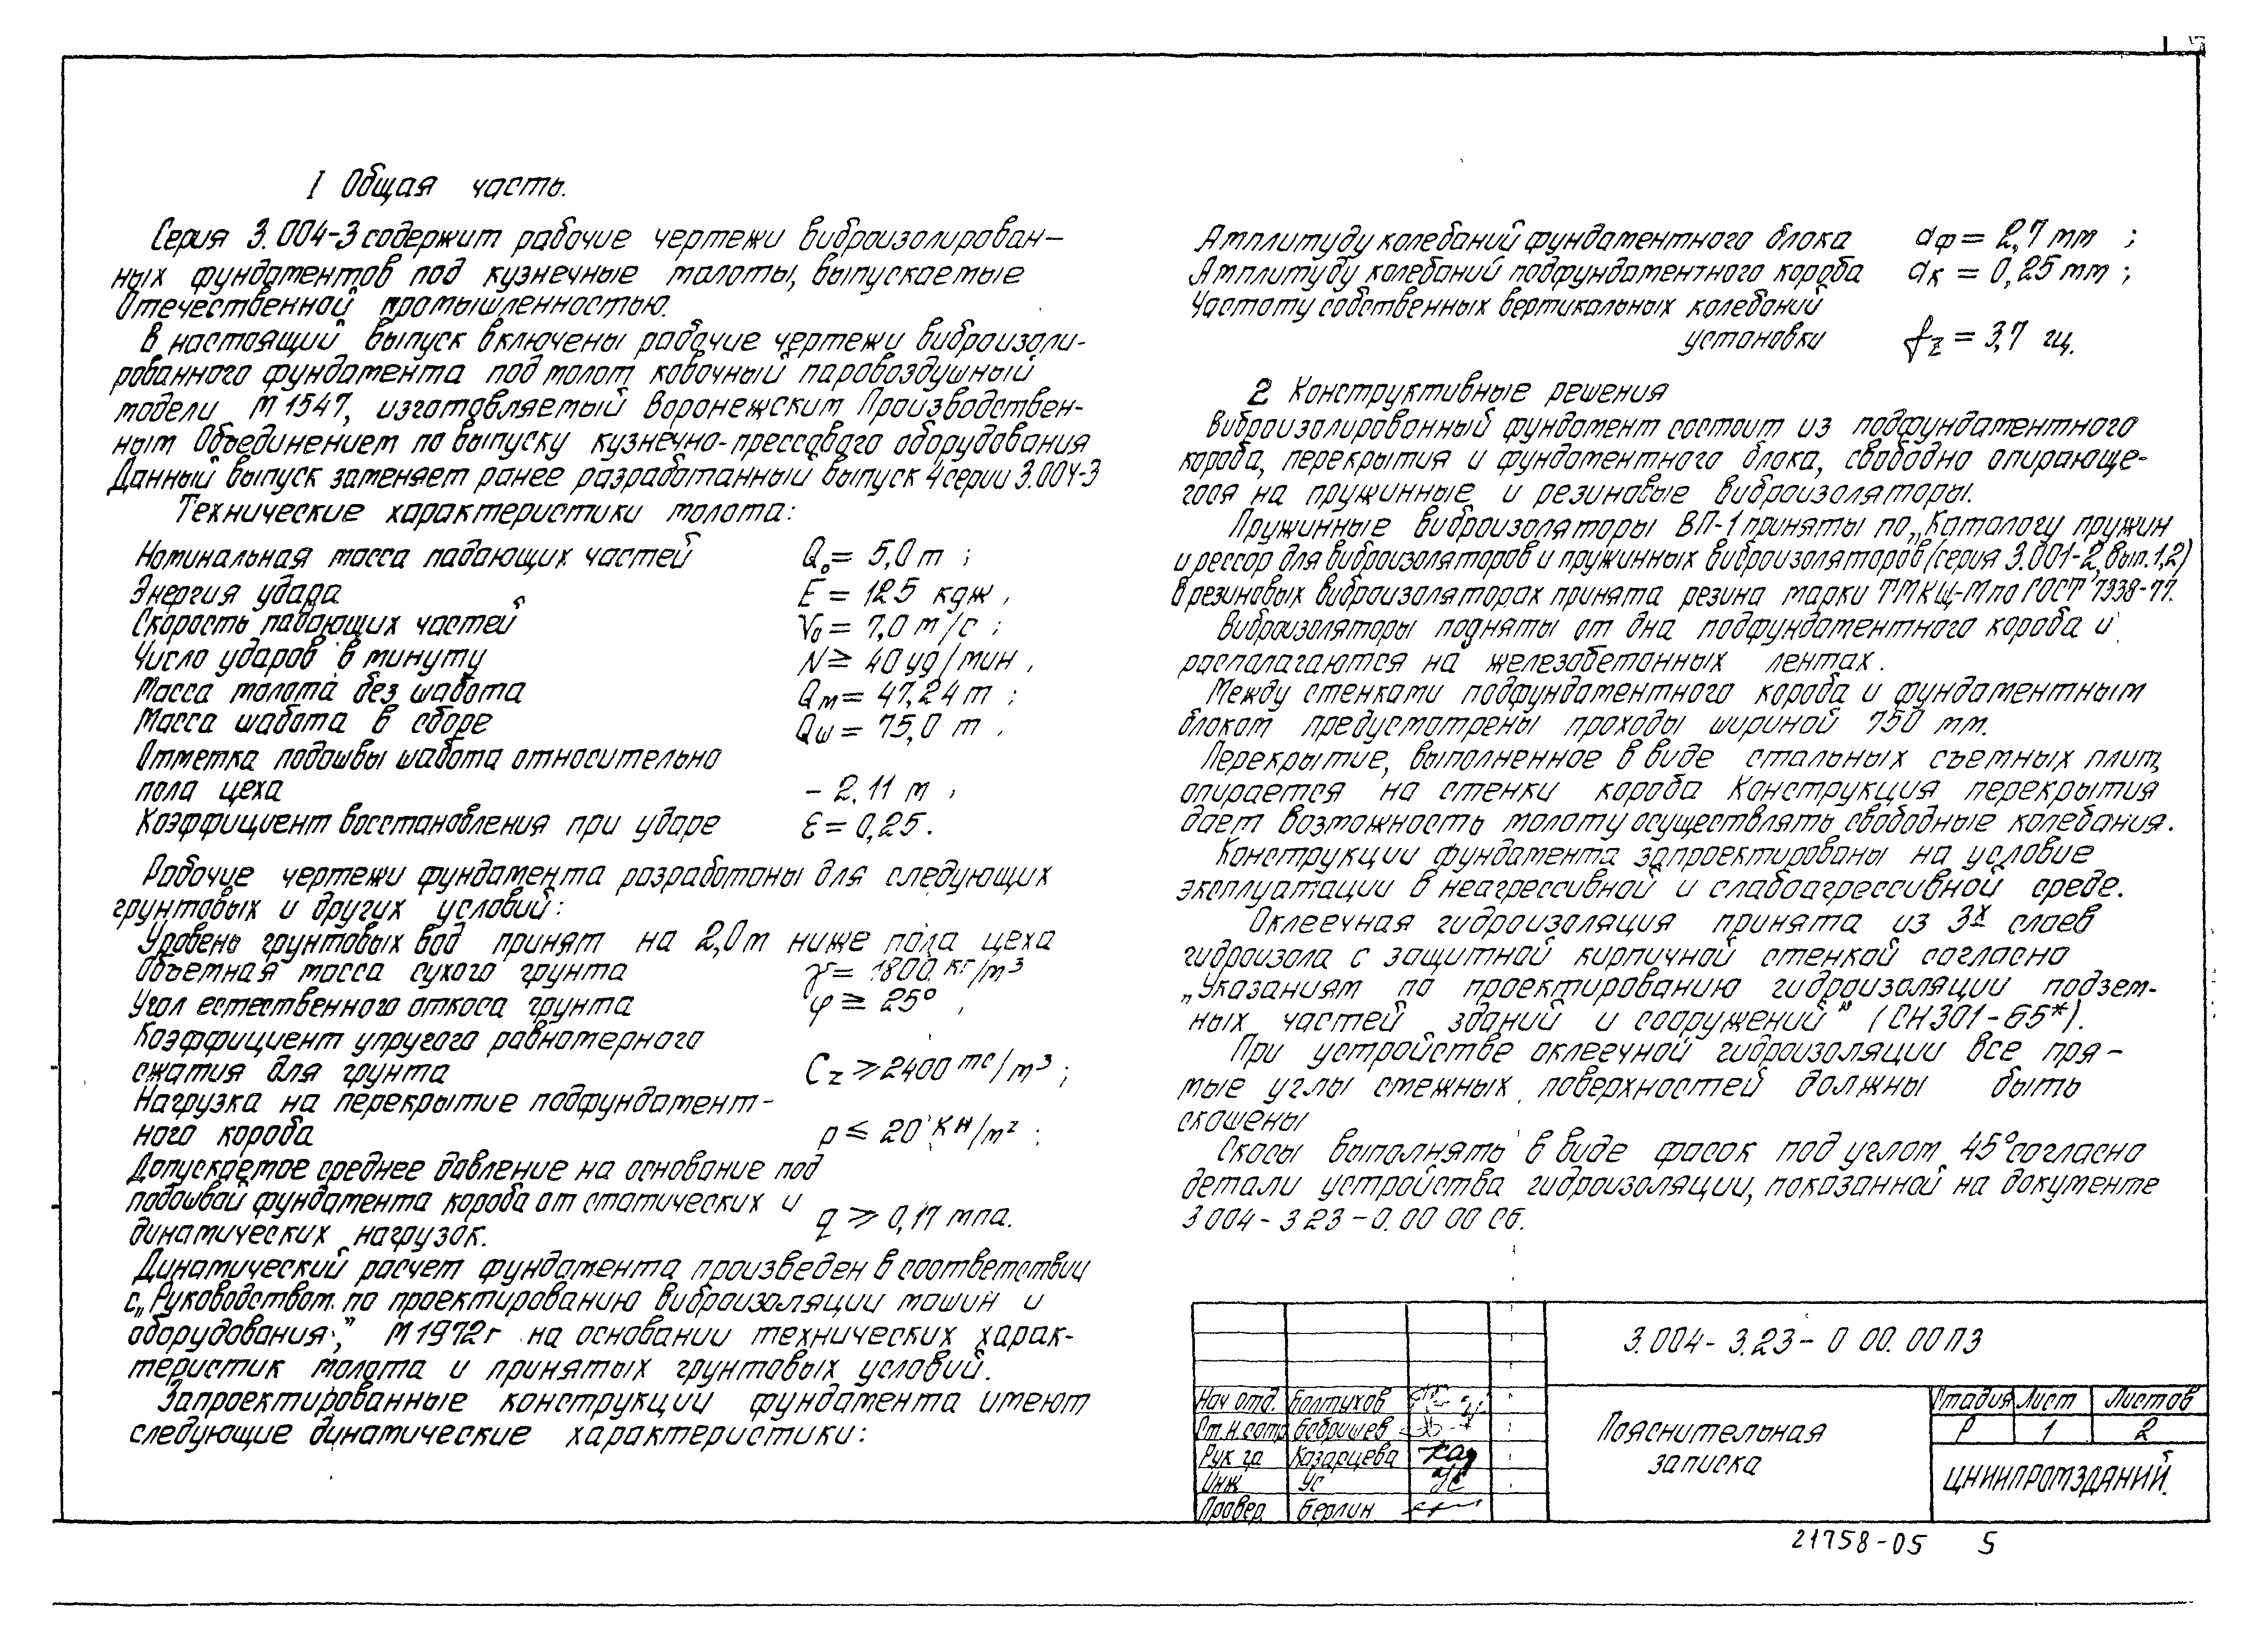 I Общая часть.
Серия 3.004-3 содержит рабочие чертежи виброизолирован-
ных фундаментов под кузнечные молоты, выпускаемые
Отечественной промышленностью.
В настоящий выпуск включены рабочие чертежи виброизоли-
рованного фундамента под молот ковочный паровоздушный
модели М1547, изготовляемый Воронежским Производствен-
ным Объединением по выпуску кузнечно-прессового оборудования
Данный выпуск заменяет ранее разработанный выпуск 4 серии 3.004-3
Технические характеристики молота:
Номинальная масса падающих частей Q₀= 5,0 т ;
Энергия удара E = 125 кдж ,
Скорость падающих частей V₀ = 7,0 м/с ;
Число ударов в минуту N ≥ 40 уд/мин ,
Масса молота без шабота Qм = 47,24 т ;
Масса шабота в сборе Qш = 75,0 т ,
Отметка подошвы шабота относительно
пола цеха - 2.11 м ,
Коэффициент восстановления при ударе ε = 0,25.
Рабочие чертежи фундамента разработаны для следующих
грунтовых и других условий:
Уровень грунтовых вод принят на 2,0м ниже пола цеха
Объемная масса сухого грунта γ = 1800 кг/м³
Угол естественного откоса грунта φ ≥ 25° ,
Коэффициент упругого равномерного
сжатия для грунта Cz ⩾ 2400 тс/м³ ;
Нагрузка на перекрытие подфундамент-
ного короба p ≤ 20 кн/м² ;
Допускаемое среднее давление на основание под
подошвой фундамента короба от статических и
динамических нагрузок. q ⩾ 0,17 мпа.
Динамический расчет фундамента произведен в соответствии
с „Руководством по проектированию виброизоляции машин и
оборудования", М 1972г на основании технических харак-
теристик молота и принятых грунтовых условий.
Запроектированные конструкции фундамента имеют
следующие динамические характеристики:
Амплитуду колебаний фундаментного блока aф = 2,7 мм ;
Амплитуду колебаний подфундаментного короба aк = 0,25 мм ;
Частоту собственных вертикальных колебаний
установки fz = 3,7 гц.
2 Конструктивные решения
Виброизолированный фундамент состоит из подфундаментного
короба, перекрытия и фундаментного блока, свободно опирающе-
гося на пружинные и резиновые виброизоляторы.
Пружинные виброизоляторы ВП-1 приняты по „Каталогу пружин
и рессор для виброизоляторов и пружинных виброизоляторов (серия 3.001-2, вып.1,2)
В резиновых виброизоляторах принята резина марки ТМКЩ-М по ГОСТ 7338-77.
Виброизоляторы подняты от дна подфундаментного короба и
располагаются на железобетонных лентах.
Между стенками подфундаментного короба и фундаментным
блоком предусмотрены проходы шириной 750 мм.
Перекрытие, выполненное в виде стальных съемных плит,
опирается на стенки короба Конструкция перекрытия
дает возможность молоту осуществлять свободные колебания.
Конструкции фундамента запроектированы на условие
эксплуатации в неагрессивной и слабоагрессивной среде.
Оклеечная гидроизоляция принята из 3х слоев
гидроизола с защитной кирпичной стенкой согласно
„Указаниям по проектированию гидроизоляции подзем-
ных частей зданий и сооружений" (СН 301-65*).
При устройстве оклеечной гидроизоляции все пря-
мые углы смежных поверхностей должны быть
скошены
Скосы выполнять в виде фасок под углом 45° согласно
детали устройства гидроизоляции, показанной на документе
3 004 - 3 23 - 0. 00 00 Сб.
3.004 - 3.23 - 0 00. 00 ПЗ
Нач отд. Болтухов
Ст.н.сотр
Рук гр Казарцева
Инж Ус
Провер. Берлин
Пояснительная
записка
Стадия Лист Листов
Р 1 2
ЦНИИПРОМЗДАНИЙ.
21758-05 5